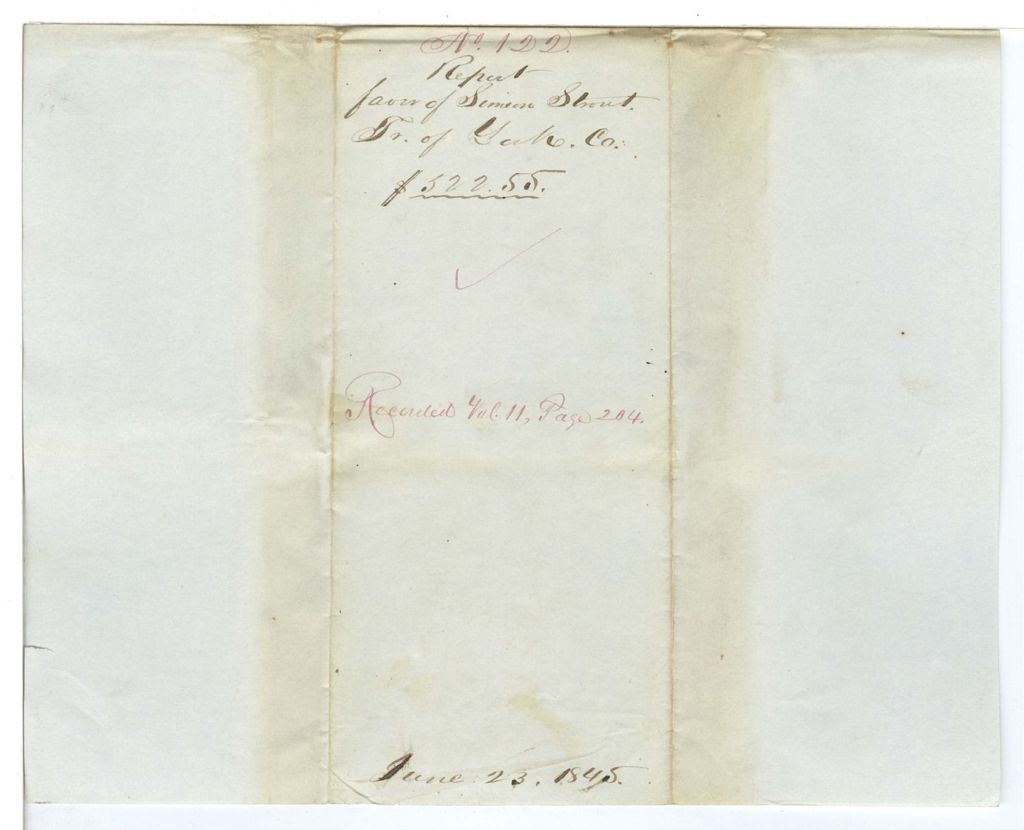 No. 122.
Report
favor of Simeon Strout.
Tr. of York. Co.
$522.55.
Recorded Vol. 11, Page 204.
June 23. 1845.